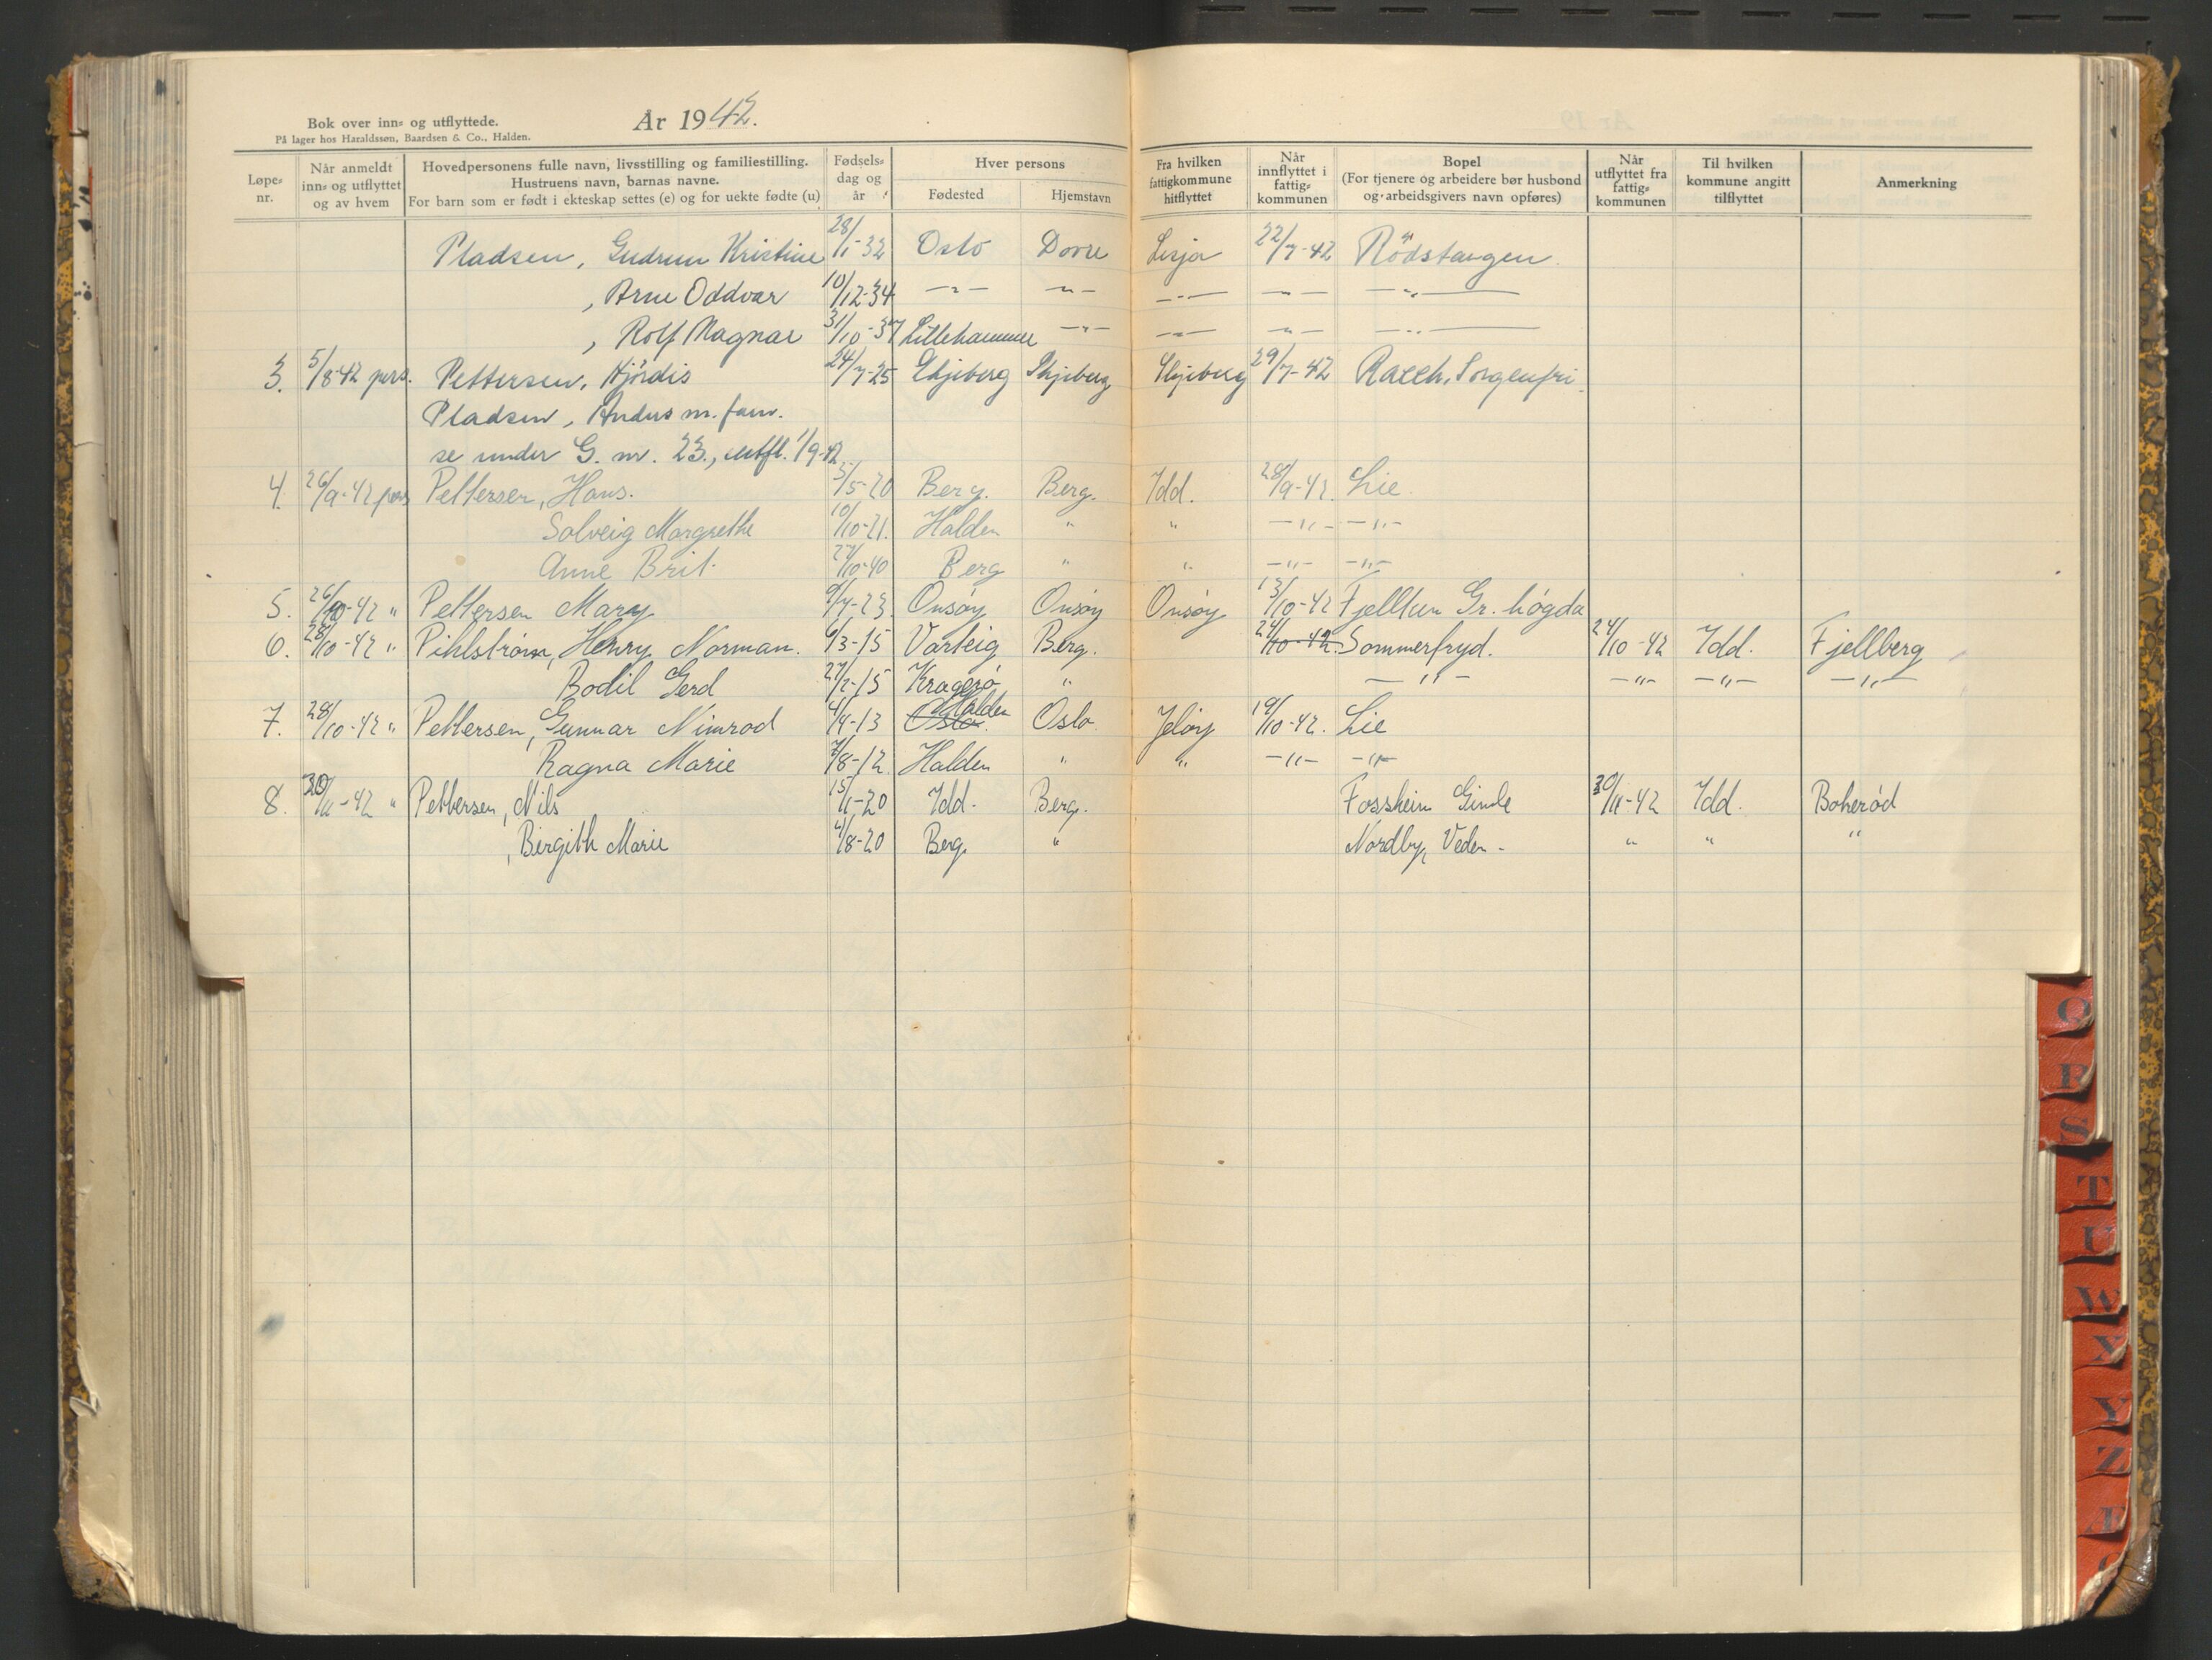 Bok over inn- og utflyttede.
På lager hos Haraldssøn, Baardsen & Co., Halden.
År 1942.
Løpe-nr. | Når anmeldt inn- og utflyttet og av hvem | Hovedpersonens fulle navn, livsstilling og familiestilling. Hustruens navn, barnas navne. For barn som er født i ekteskap settes (e) og for uekte fødte (u) | Fødsels-dag og år | Hver persons Fødested | Hjemstavn | Fra hvilken fattigkommune hitflyttet | Når innflyttet i fattig-kommunen | Bopel (For tjenere og arbeidere bør husbond og arbeidsgivers navn opføres) | Når utflyttet fra fattig-kommunen | Til hvilken kommune angitt tilflyttet | Anmerkning
Pladsen, Gudrun Kristine 28/1-32 Oslo Dovre Lesja 22/7-42 Rödstangen
, Arne Oddvar 10/12-34 -"- -"- -"- -"- -"-
, Rolf Magnar 31/10-37 Lillehammer -"- -"- -"- -"-
3. 5/8-42 pers. Pettersen, Hjördis 24/7-25 Skjeberg Skjeberg Skjeberg 29/7-42 Sorgenfri.
Pladsen, Anders m. fam.
se under G. nr. 23., utfl. 1/9-42
4. 26/9-42 pers Pettersen, Hans. 5/5-20 Berg. Berg. Idd. 28/9-42. Lie.
Solveig Margrethe 10/10-21. Halden " " -"- -"-
Anne Brit. 27/10-40 Berg " " -"- -"-
5. 26/10-42 " Pettersen Mary 9/7-23. Onsøy Onsøy Onsøy 13/10-42 Fjelltun Gr. høgda
6. 28/10-42 " Pihlstrøm, Henry Norman. 9/3-15 Varteig Berg. 24/10-42. Sommerfryd. 24/10-42 Idd. Fjellberg
Bodil Gerd 27/2-15 Kragerø " -"- -"- -"- -"-
7. 28/10-42 " Pettersen, Gunnar Nimrod 4/4-13 Oslo. Halden Oslo Jeløy 19/10-42. Lie
Ragna Marie 7/8-12. Halden " " -"- -"-
8. 30/11-42 " Pettersen, Nils 15/11-20 Idd. Berg. Fossheim Gimle 30/11-42 Idd. Bøkerød
, Birgith Marie 4/8-20 Berg. " Nordby, Veden - " " "
Q
R
S
T
U
W
X
Y
Z
Æ